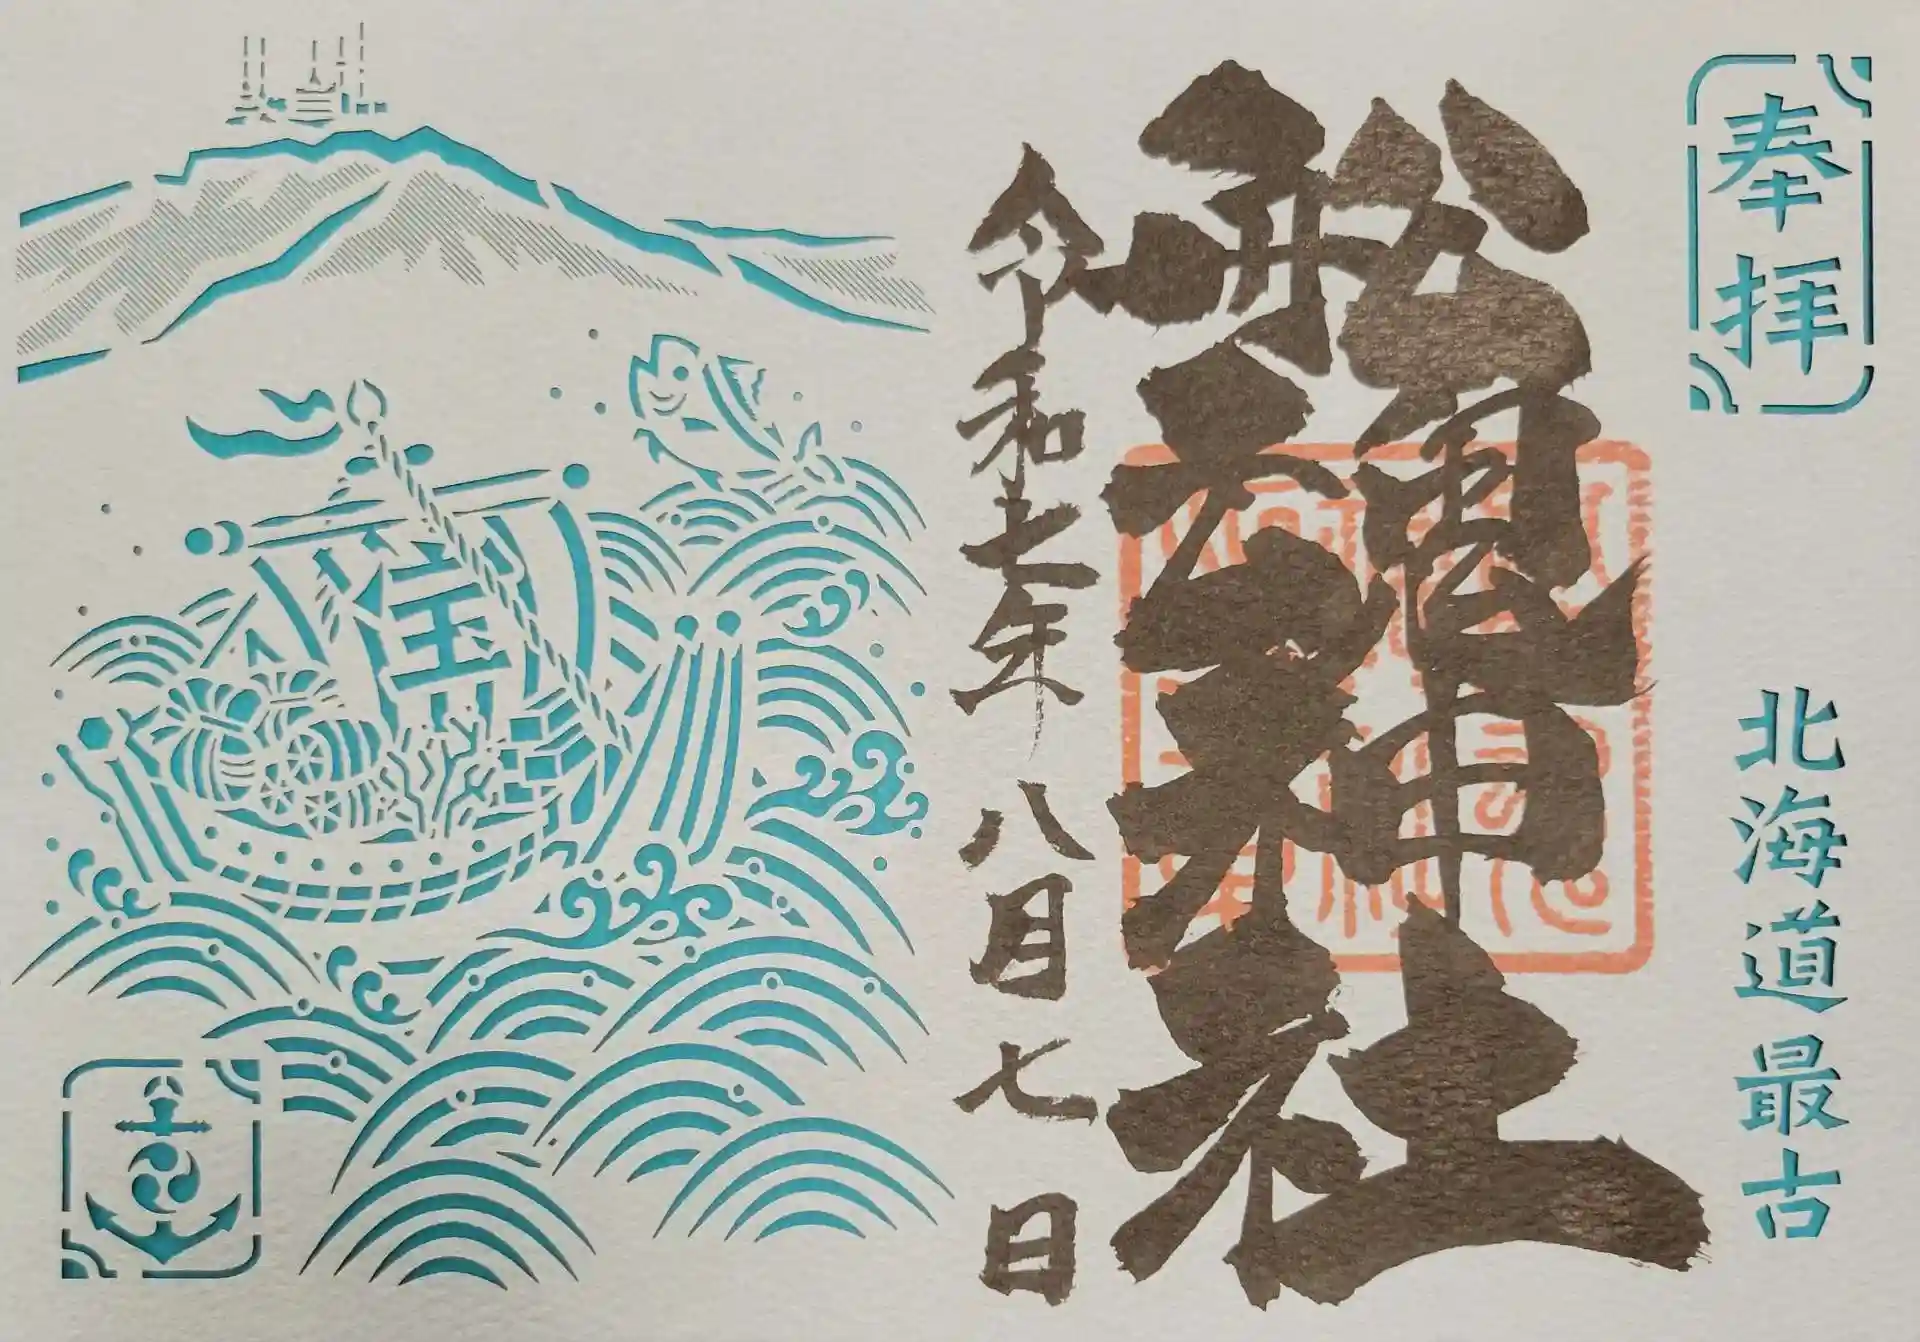 奉拝
北海道最古
船魂神社
令和七年八月七日
宝